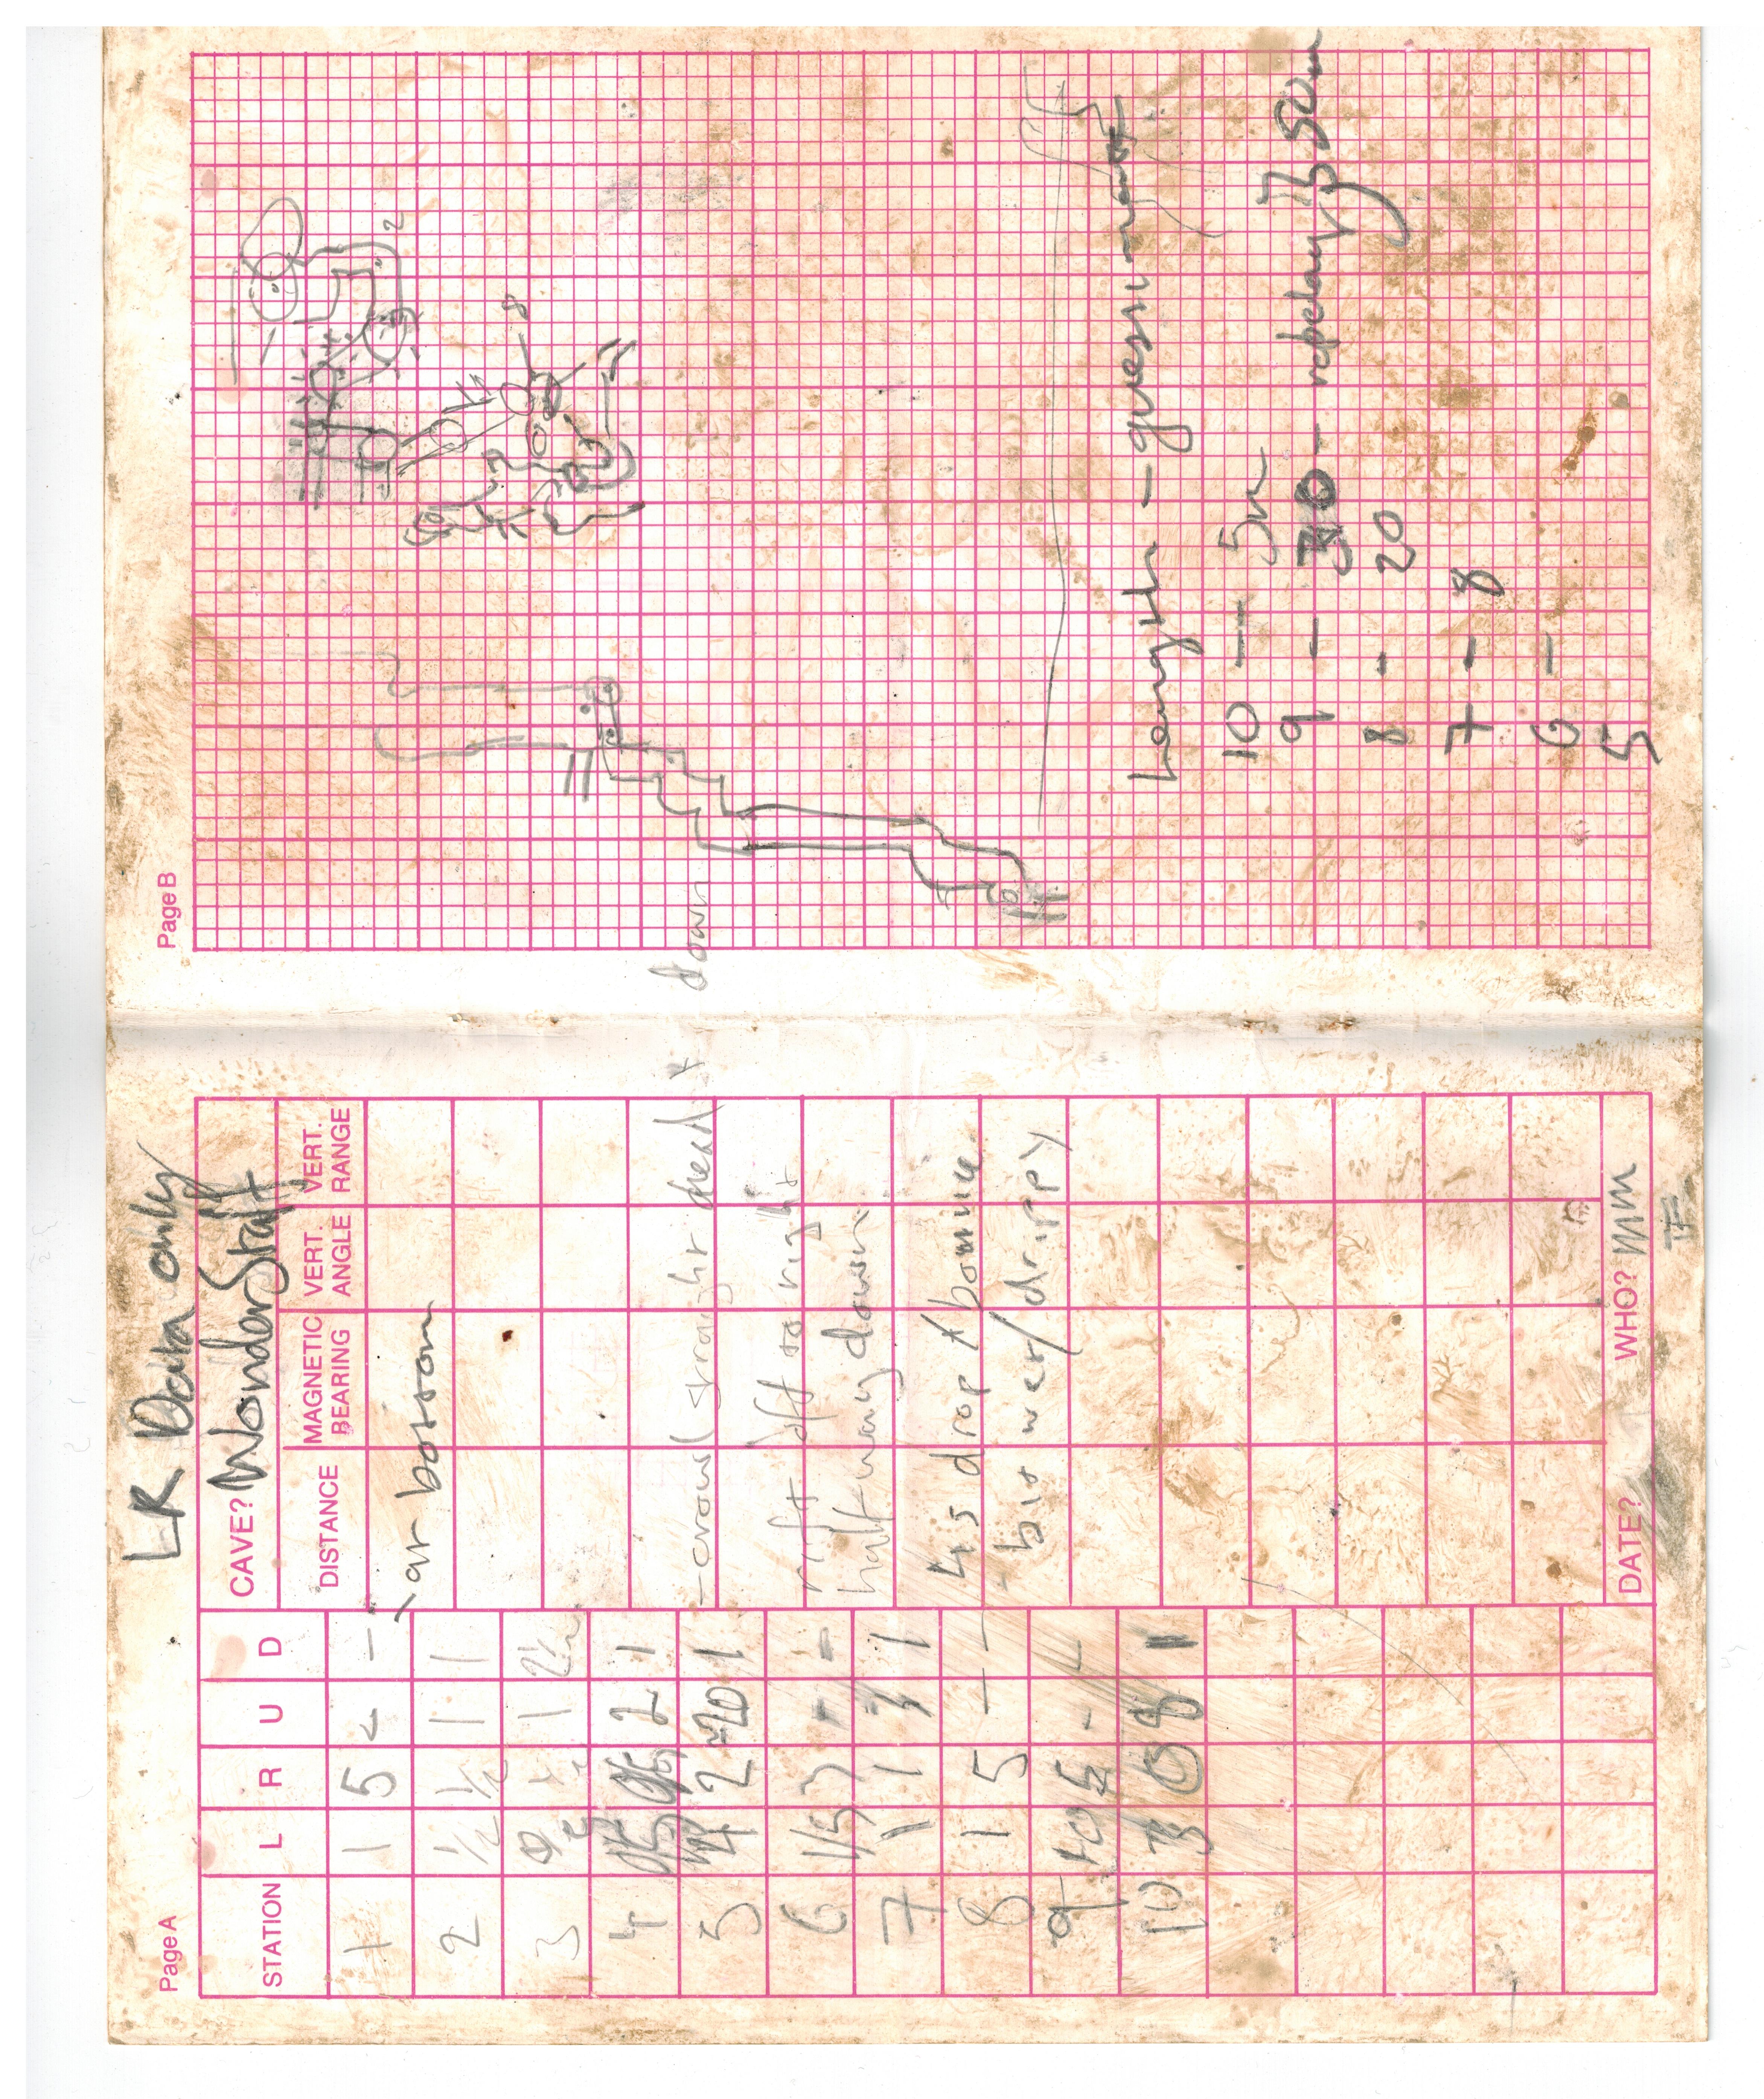 Page A
LR Data only
CAVE? WonderStaff
STATION L R U D DISTANCE MAGNETIC BEARING VERT. ANGLE VERT. RANGE
1 1 5 < -
- at bottom
2 1/2 1/2 1 1
3 0 1
4 2 1
5 2 20 1
- crawl straight ahead +
down
6 1.5 3 - -
rift off to right
halfway down
7 1 1 3 1
8 1 5 - -
4s drop / bounce
- bit wet/drippy
9 10 5 - -
10 3 0 8 1
DATE? WHO? MM
TF
Page B
2
8
Length - guesstimate
10 - 5m
9 - 30 - rebelay } 50m
8 - 20
7 - 8
6 -
5